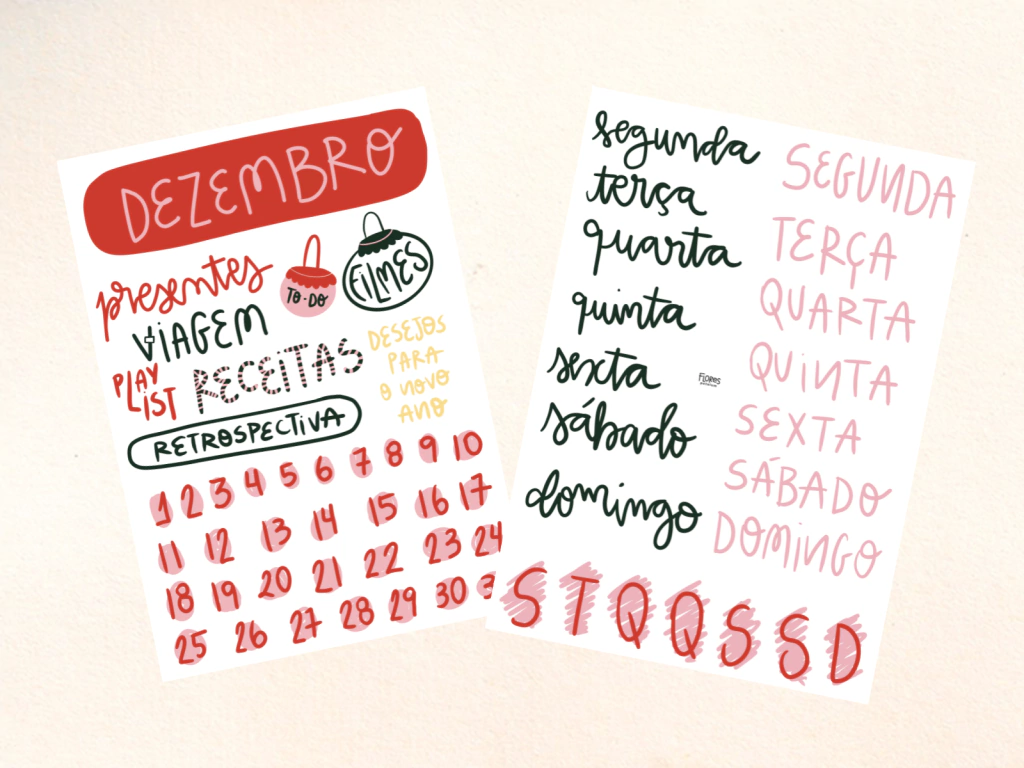 DEZEMBRO
presentes
TO-DO
FILMES
VIAGEM
PLAY
LIST
RECEITAS
DESEJOS
PARA
O NOVO
ANO
RETROSPECTIVA
1 2 3 4 5 6 7 8 9 10
11 12 13 14 15 16 17
18 19 20 21 22 23 24
25 26 27 28 29 30
segunda
terça
quarta
quinta
sexta
sábado
domingo
SEGUNDA
TERÇA
QUARTA
QUINTA
SEXTA
SÁBADO
DOMINGO
FLORES
S T Q Q S S D